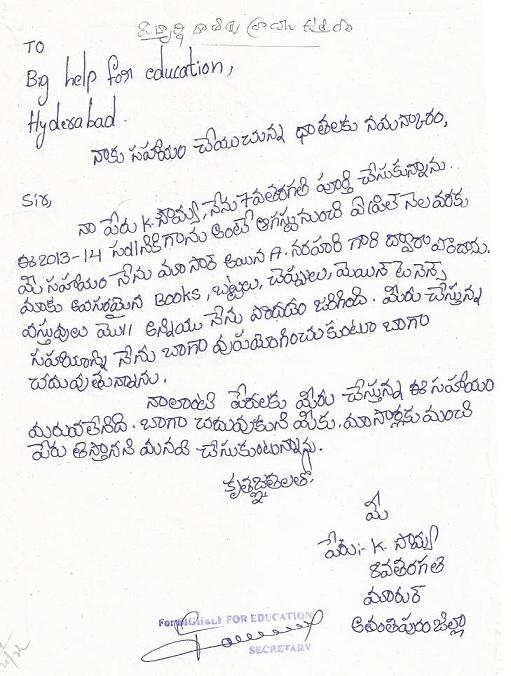 విద్యార్థి దాతకు వ్రాయు ఉత్తరం
TO
Big help for education,
Hyderabad.
నాకు సహాయం చేయుచున్న ధాతలకు నమస్కారం,
Sir,
నా పేరు K. సౌమ్య, నేను 7వతరగతి పూర్తి చేసుకున్నాను.
ఈ 2013-14 సం॥నికి గాను అంటే ఆగస్టు నుంచి ఏప్రిల్ నెల వరకు
మీ సహాయం నేను మా సార్ అయిన A. నరహరి గారి ద్వారా పొందాను.
మాకు అవసరమైన Books, బట్టలు, చెప్పులు, మెయిన్ టెనెన్స్
వస్తువులు మొ॥ అన్నియు నేను పొందడం జరిగింది. మీరు చేస్తున్న
సహాయాన్ని నేను బాగా వుపయోగించుకుంటూ బాగా
చదువుతున్నాను.
నాలాంటి పేదలకు మీరు చేస్తున్న ఈ సహాయం
మరువలేనిది. బాగా చదువుకుని మీకు, మా సార్లకు మంచి
పేరు తెస్తానని మనవి చేసుకుంటున్నాను.
కృతజ్ఞతలతో.
మీ
పేరు:- K. సౌమ్య
8వతరగతి
మూరుర్
అనంతపురం జిల్లా
For BIGHELP FOR EDUCATION
SECRETARY